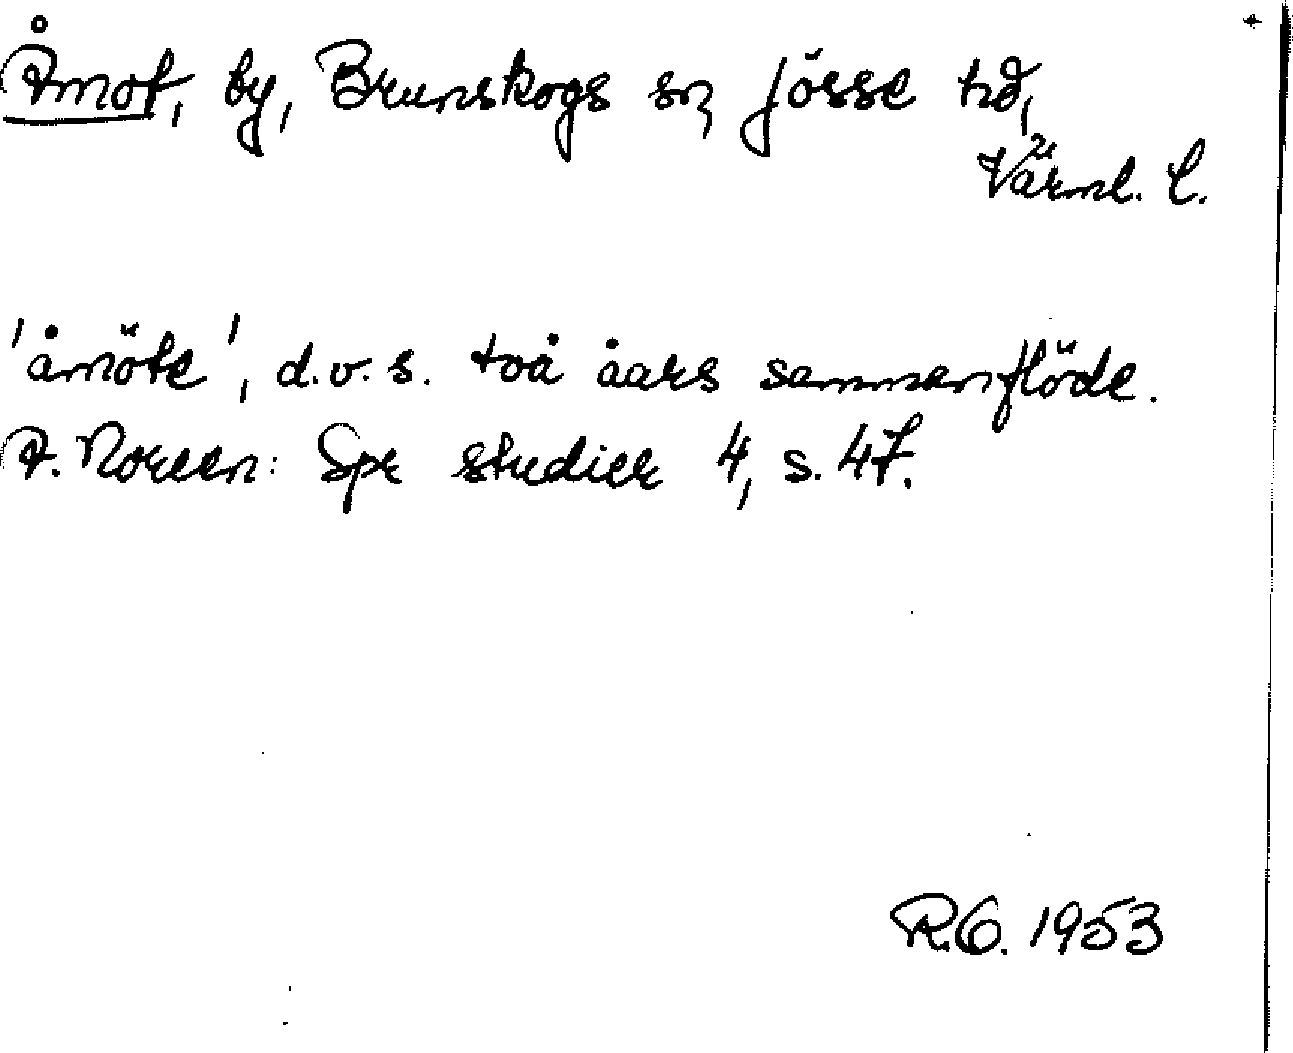 Åmot, by, Brunskogs sn, Jösse hd,
Värml. l.
'åmöte', d.v.s. två åars sammanflöde.
A. Noreen: Spr studier 4, s. 47.
R.G. 1953